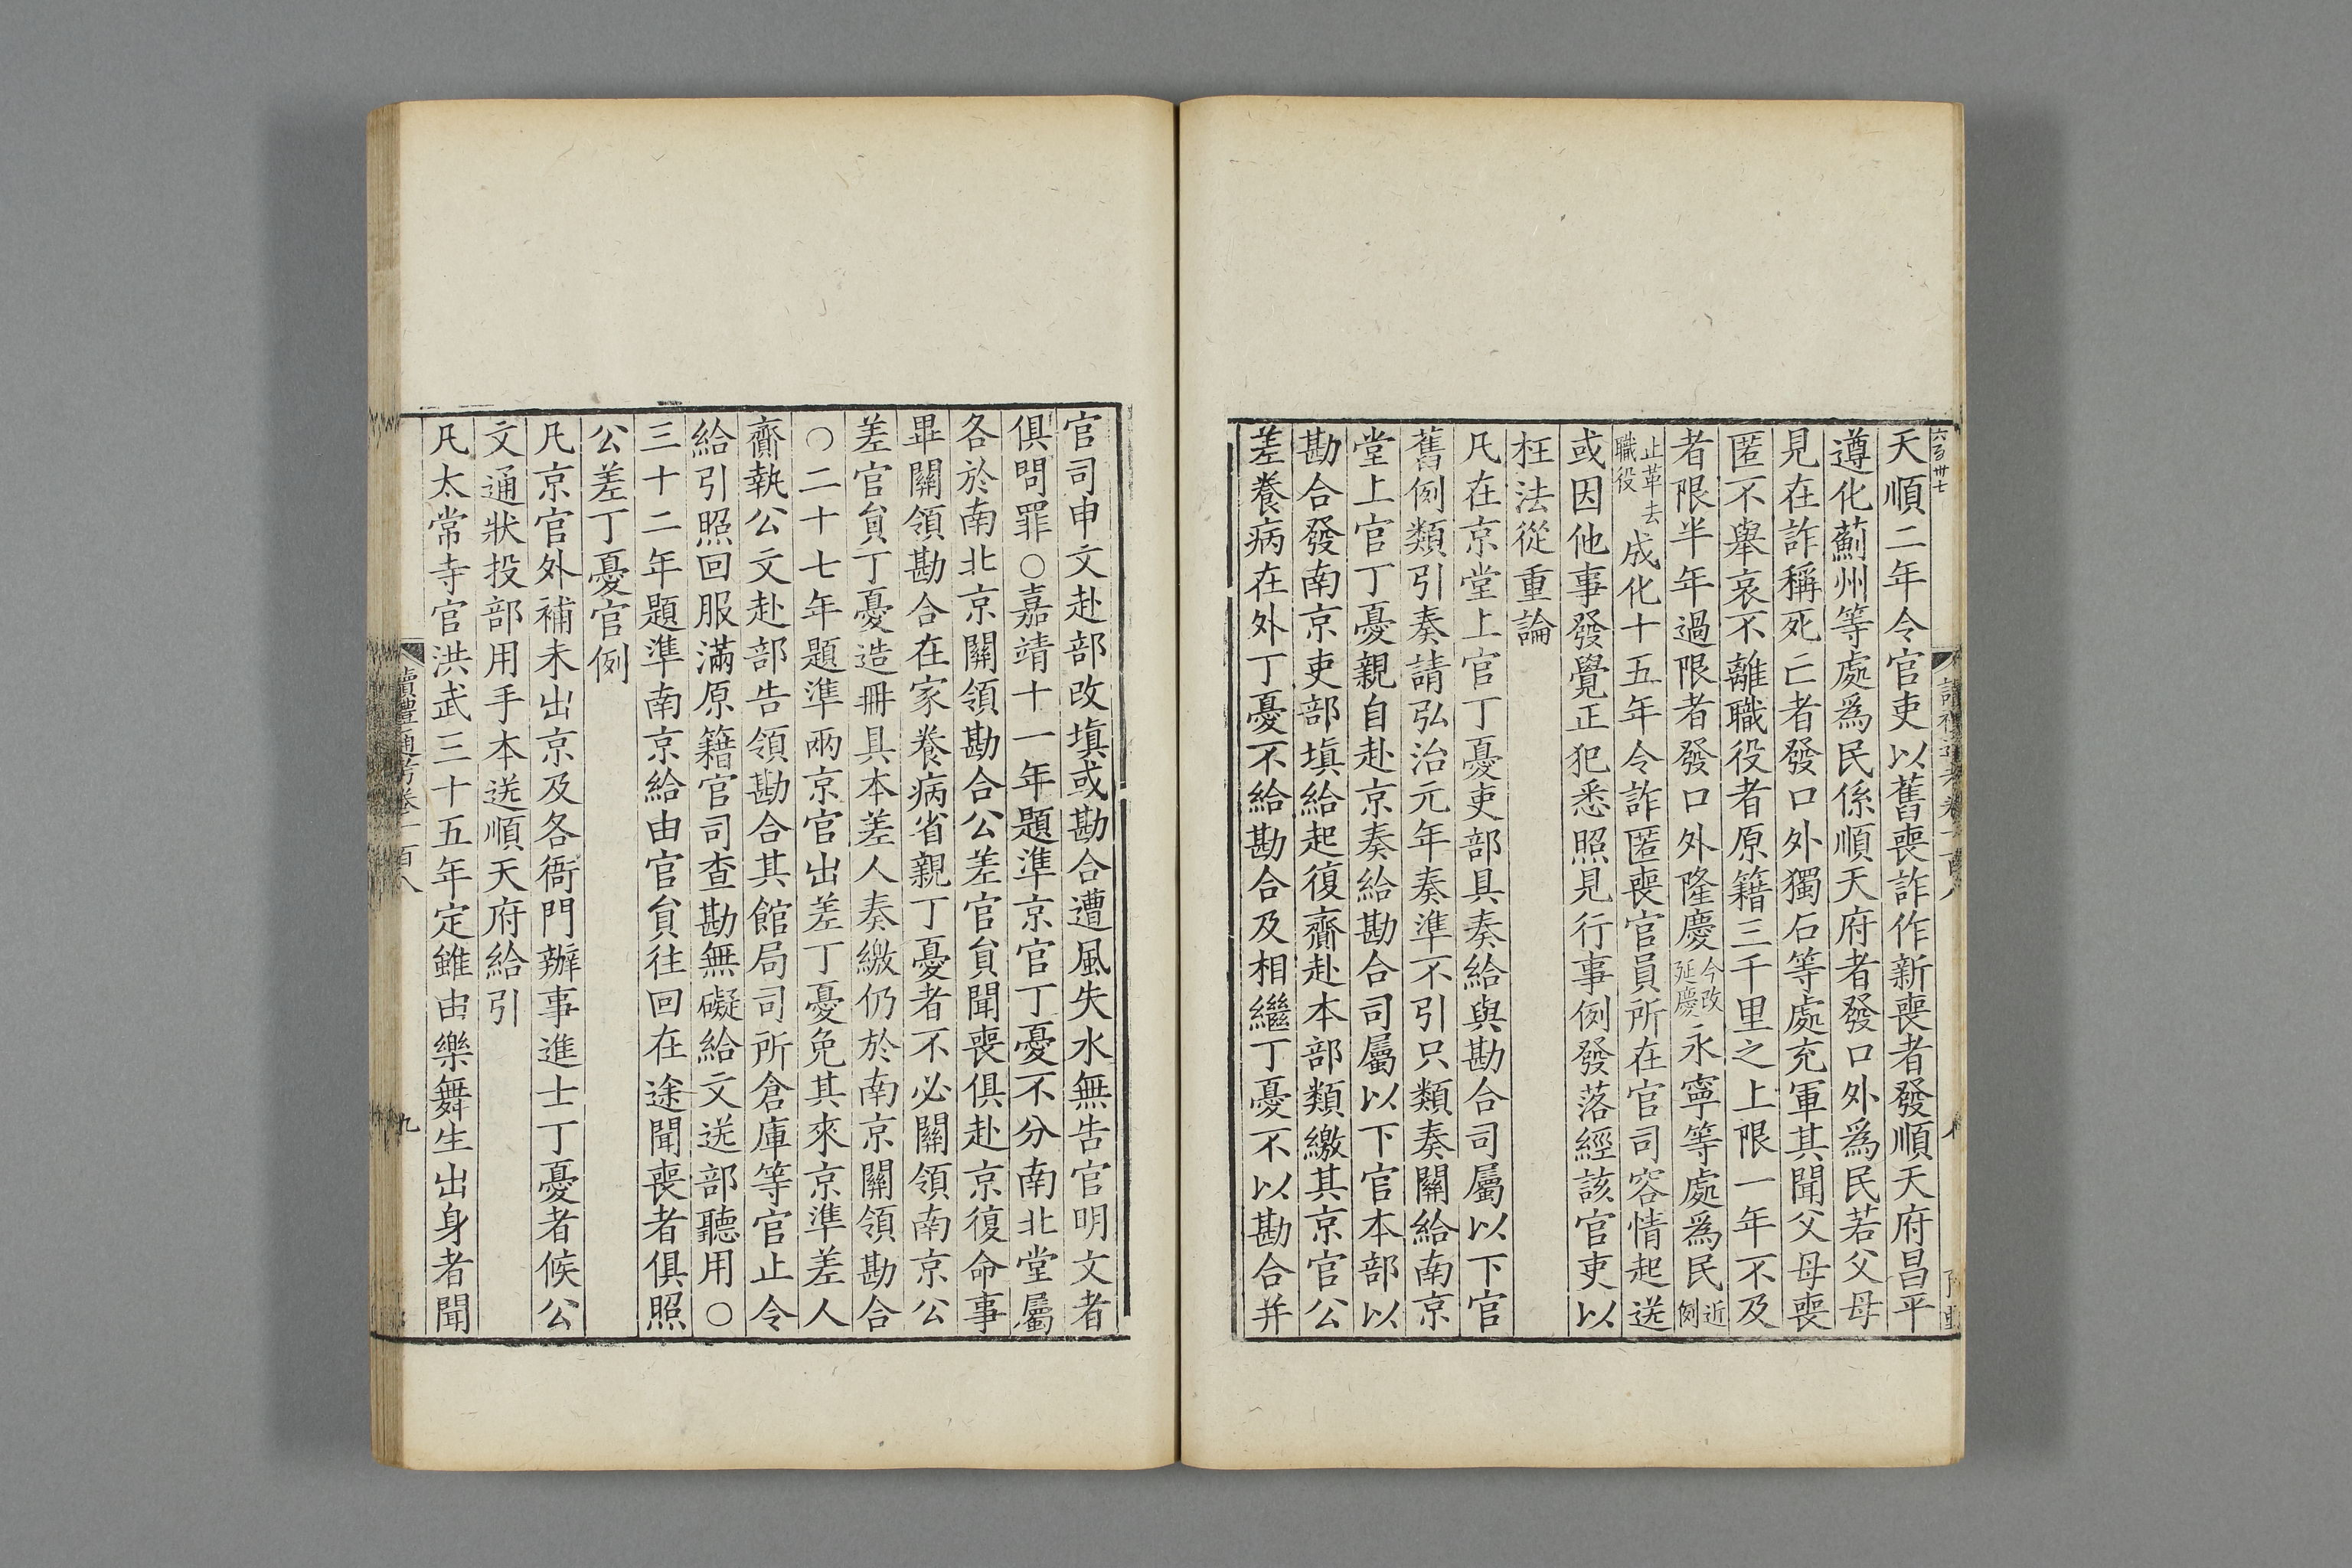 六百卅七
天順二年令官吏以舊喪詐作新喪者發順天府昌平
遵化薊州等處爲民係順天府者發口外爲民若父母
見在詐稱死亡者發口外獨石等處充軍其聞父母喪
匿不舉哀不離職役者原籍三千里之上限一年不及
者限半年過限者發口外隆慶今改延慶永寧等處爲民近例
止革去職役成化十五年令詐匿喪官員所在官司容情起送
或因他事發覺正犯悉照見行事例發落經該官吏以
枉法從重論
凡在京堂上官丁憂吏部具奏給與勘合司屬以下官
舊例類引奏請弘治元年奏準不引只類奏關給南京
堂上官丁憂親自赴京奏給勘合司屬以下官本部以
勘合發南京吏部塡給起復齎赴本部類繳其京官公
差養病在外丁憂不給勘合及相繼丁憂不以勘合并
官司申文赴部改塡或勘合遭風失水無吿官明文者
俱問罪○嘉靖十一年題準京官丁憂不分南北堂屬
各於南北京關領勘合公差官貟聞喪俱赴京復命事
畢關領勘合在家養病省親丁憂者不必關領南京公
差官貟丁憂造冊具本差人奏繳仍於南京關領勘合
○二十七年題準兩京官出差丁憂免其來京準差人
齎執公文赴部告領勘合其館局司所倉庫等官止令
給引照回服滿原籍官司查勘無礙給文送部聽用○
三十二年題準南京給由官貟往回在途聞喪者俱照
公差丁憂官例
凡京官外補未出京及各衙門辦事進士丁憂者候公
文通狀投部用手本送順天府給引
凡太常寺官洪武三十五年定雖由樂舞生出身者聞
讀禮通考卷一百八
九